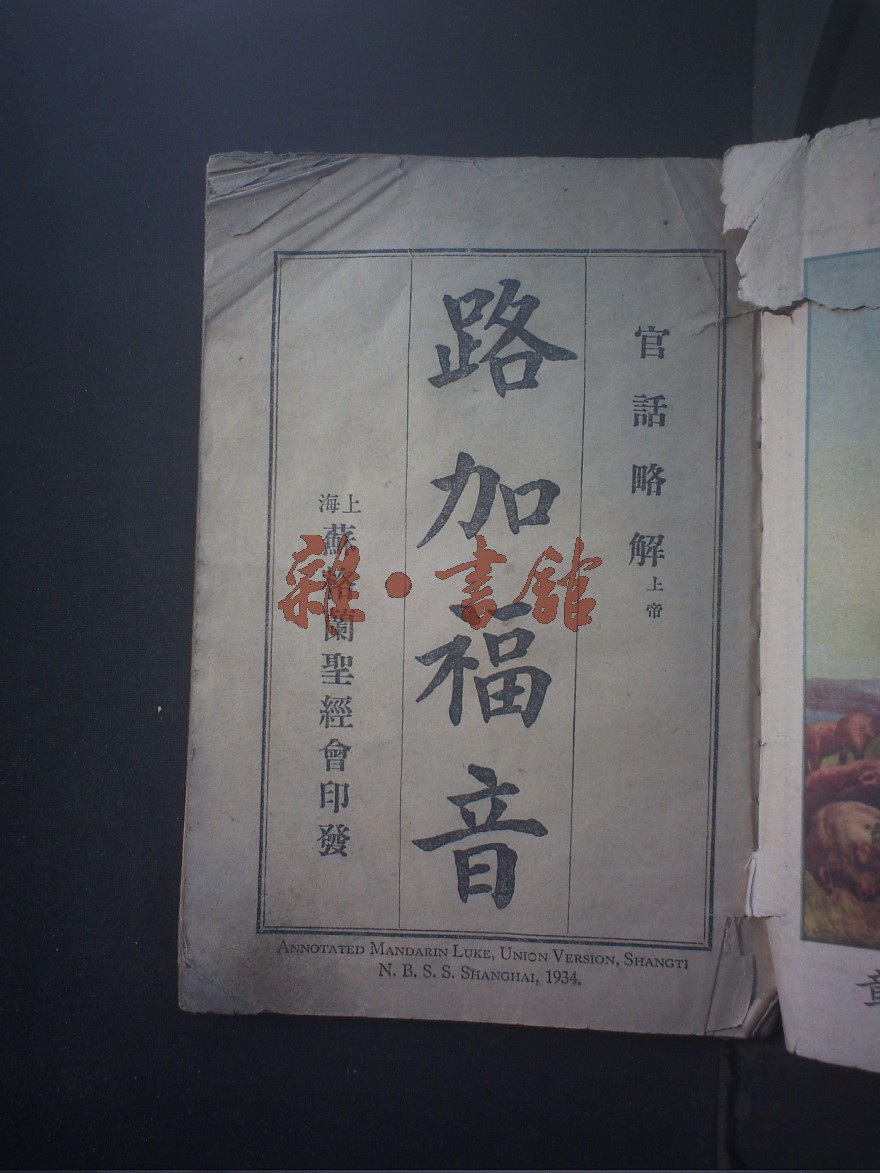 官話略解上帝
路加福音
上海
蘇格蘭聖經會印發
ANNOTATED MANDARIN LUKE, UNION VERSION, SHANGTI
N. B. S. S. SHANGHAI, 1934.
雜·書館